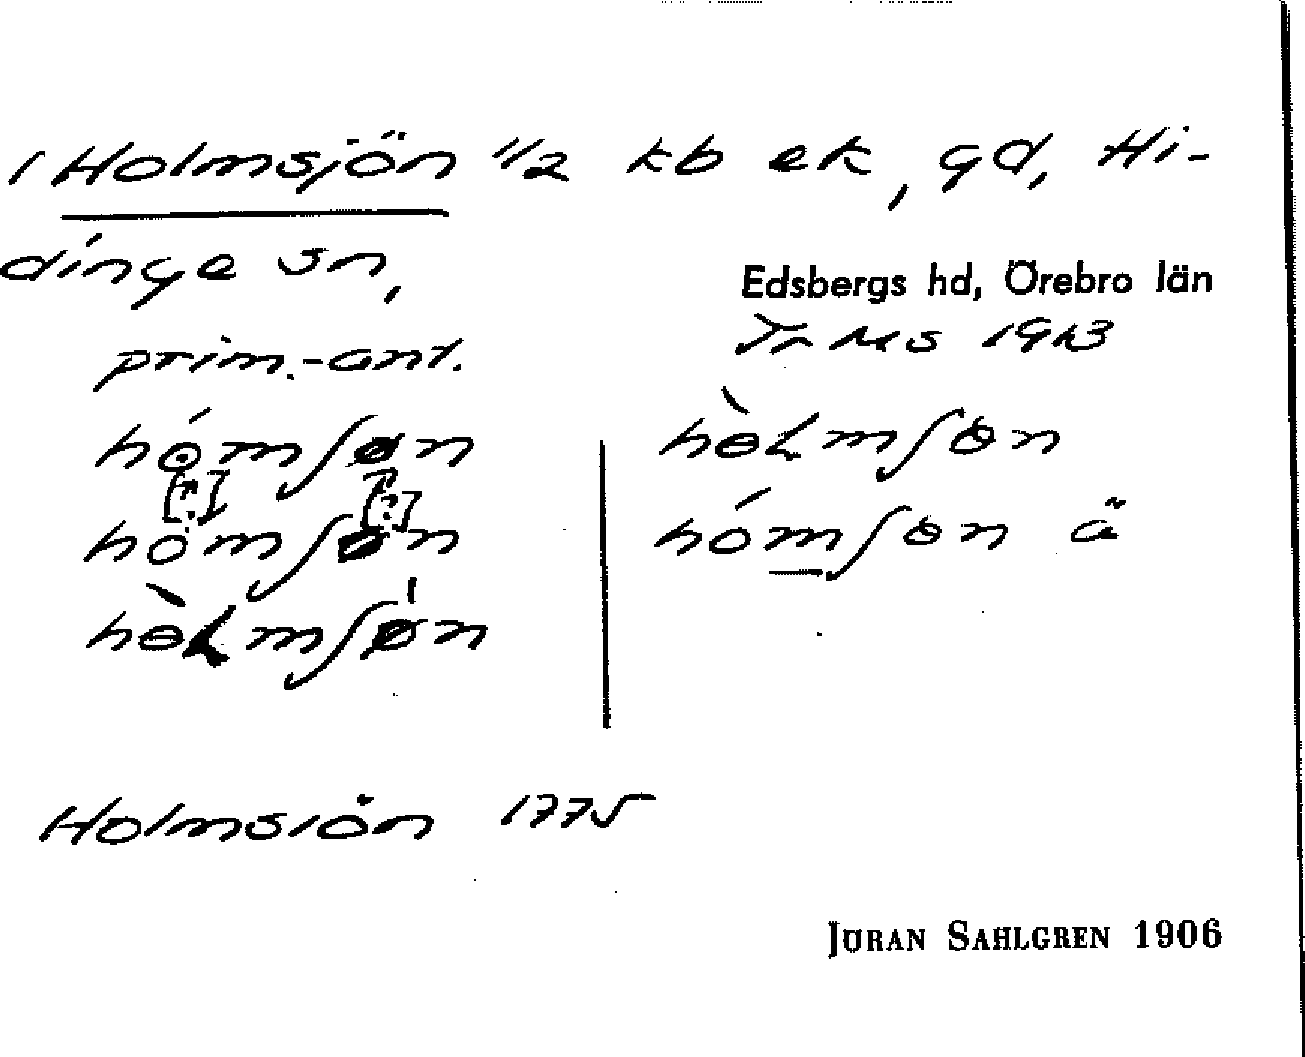 1 Holmsjön 1/2 kb ek, gd, Hi-
dinge sn,
Edsbergs hd, Örebro län
prim.-ant.
MS 1913
hómʃøn
[?] [?]
hòmʃøn
hòɫmʃøn
hòɫmʃɵn
hómʃɵn ä
Holmsiön 1775
JÖRAN SAHLGREN 1906